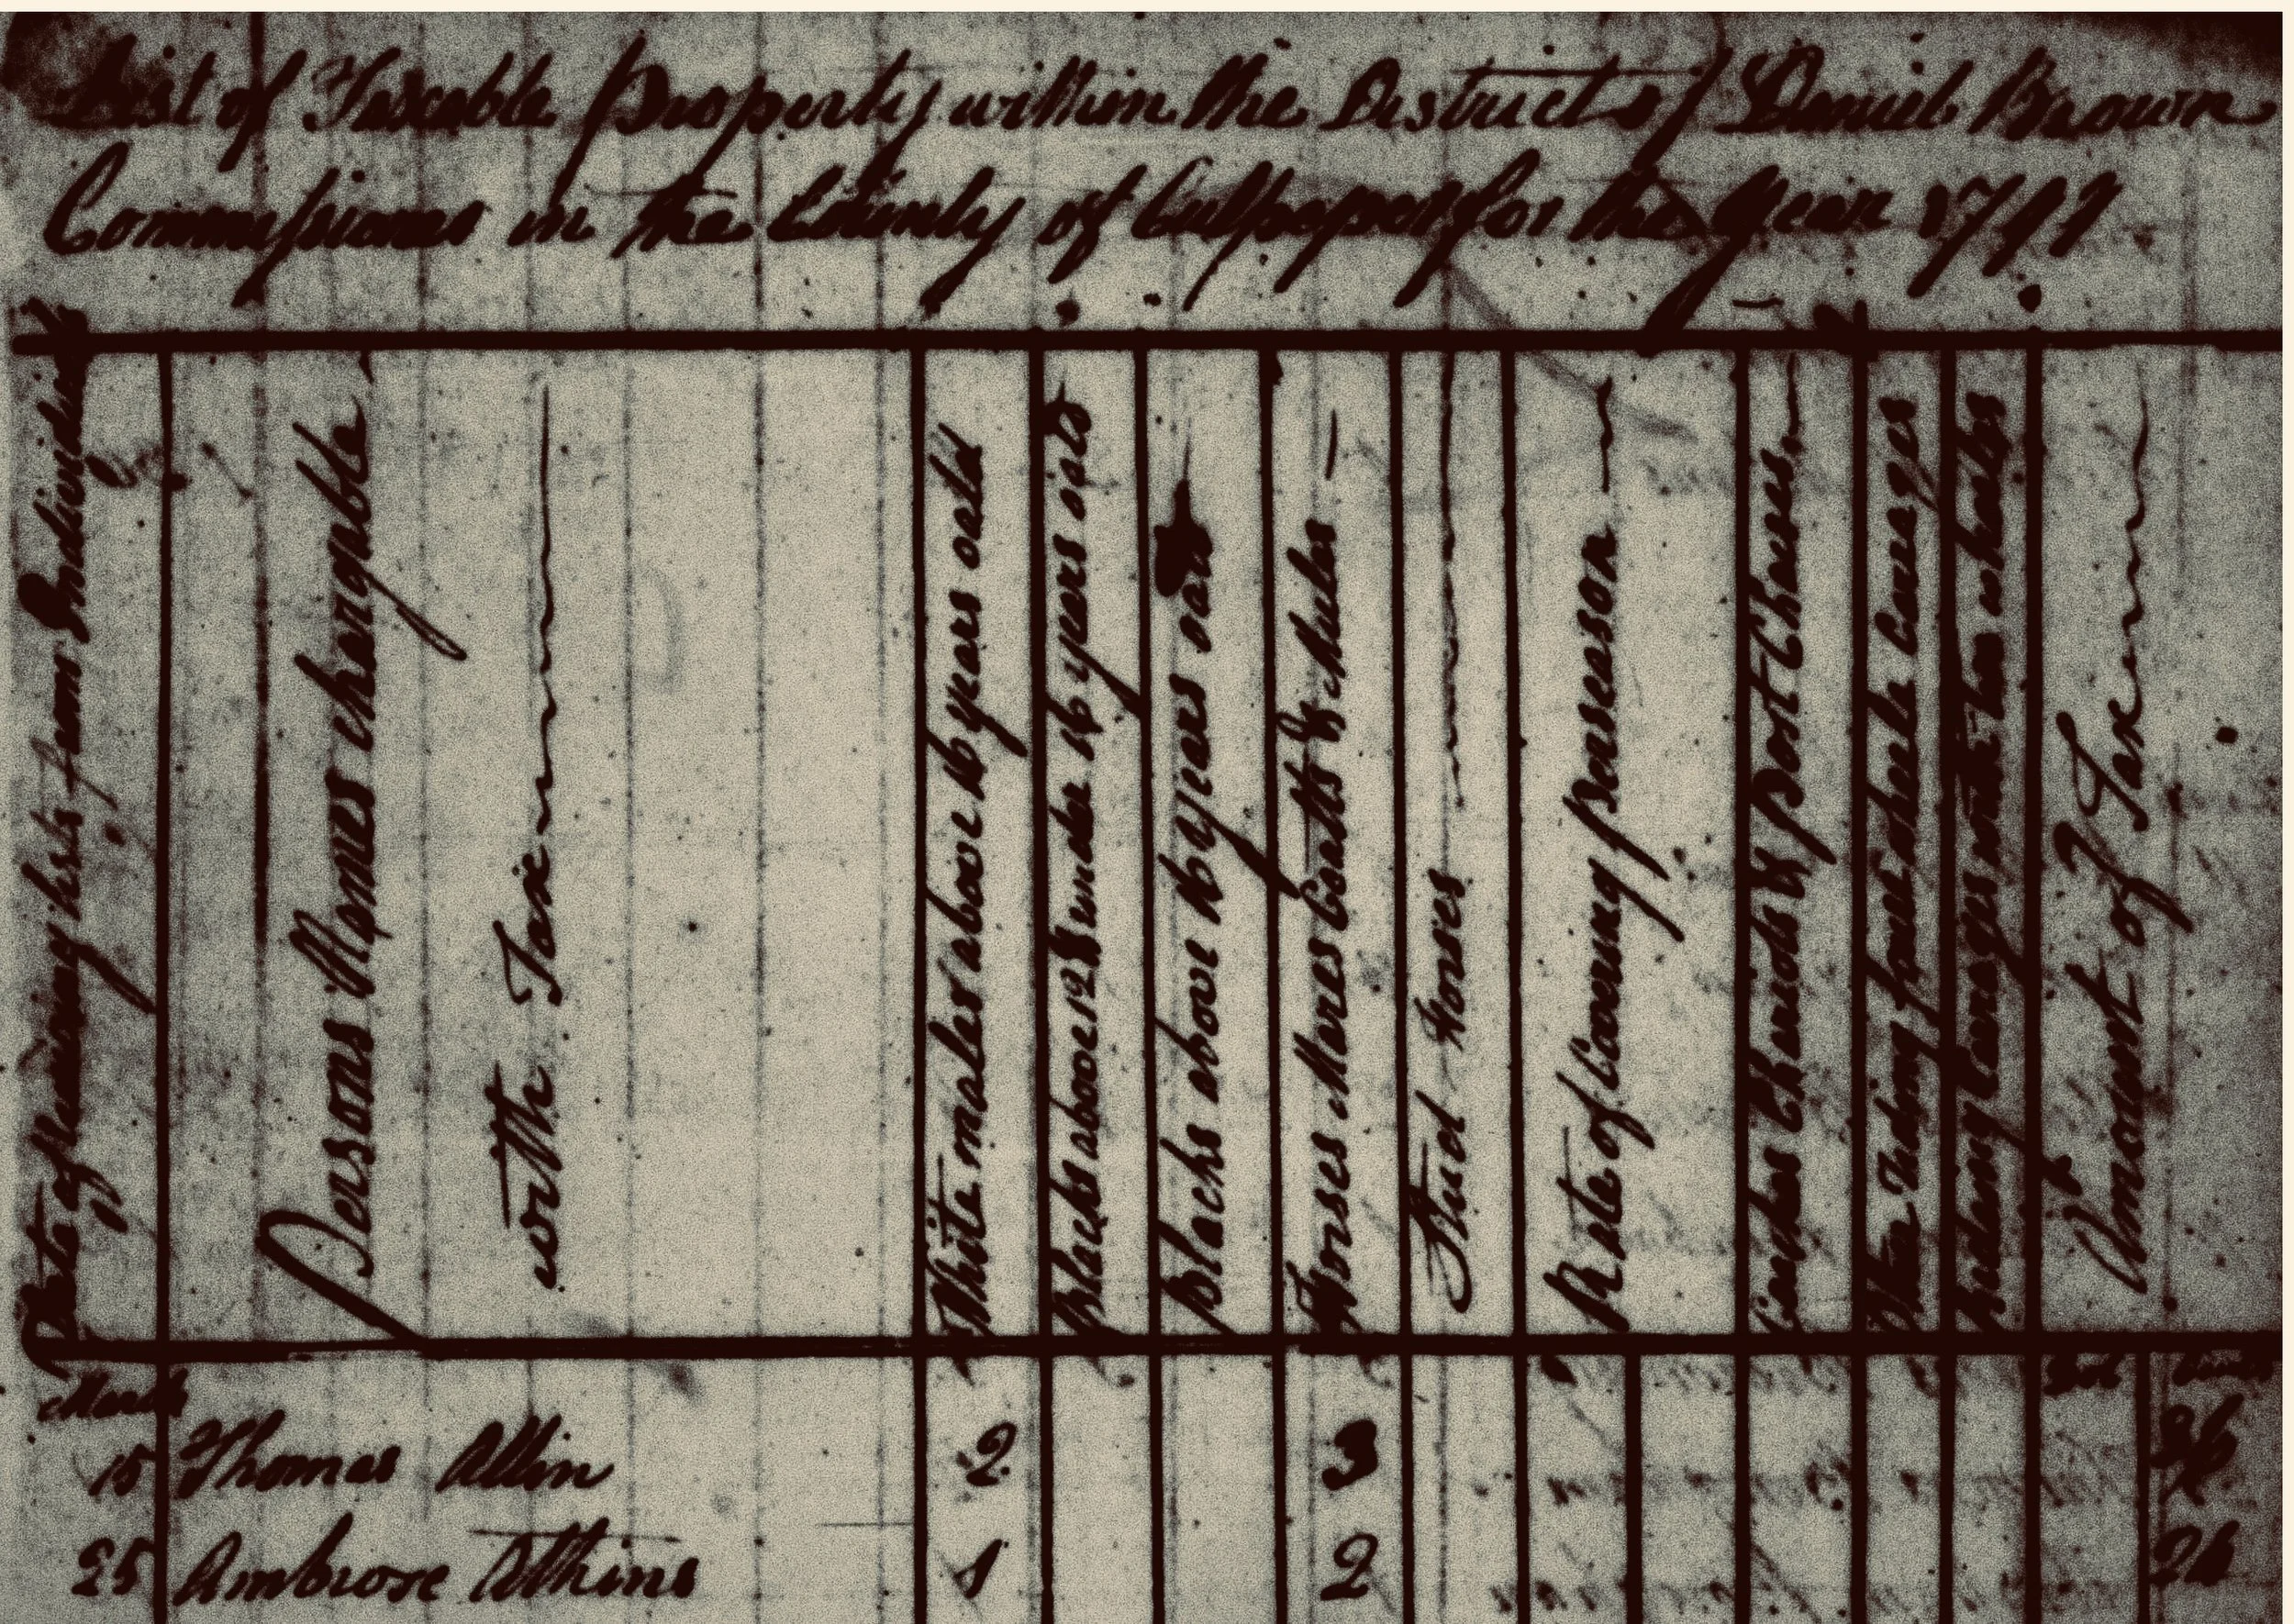 List of Taxable property within the District of Daniel Brown
Commissioner in the County of Culpeper for the year
Date of receiving lists from Individuals
Persons Names chargable
with Tax
White males above 16 years old
Blacks above 12 & under 16 years old
Blacks above 16 years old
Horses Mares Coalts & Mules
Stud Horses
Rate of Covering pr season
Coaches Chariots & Post Chaises
Other Riding four wheele Carages
Rideing Carages with two wheles
Amount of Tax
March
15 Thomas Allin 2 3 36
25 Ambrose Atkins 1 2 24